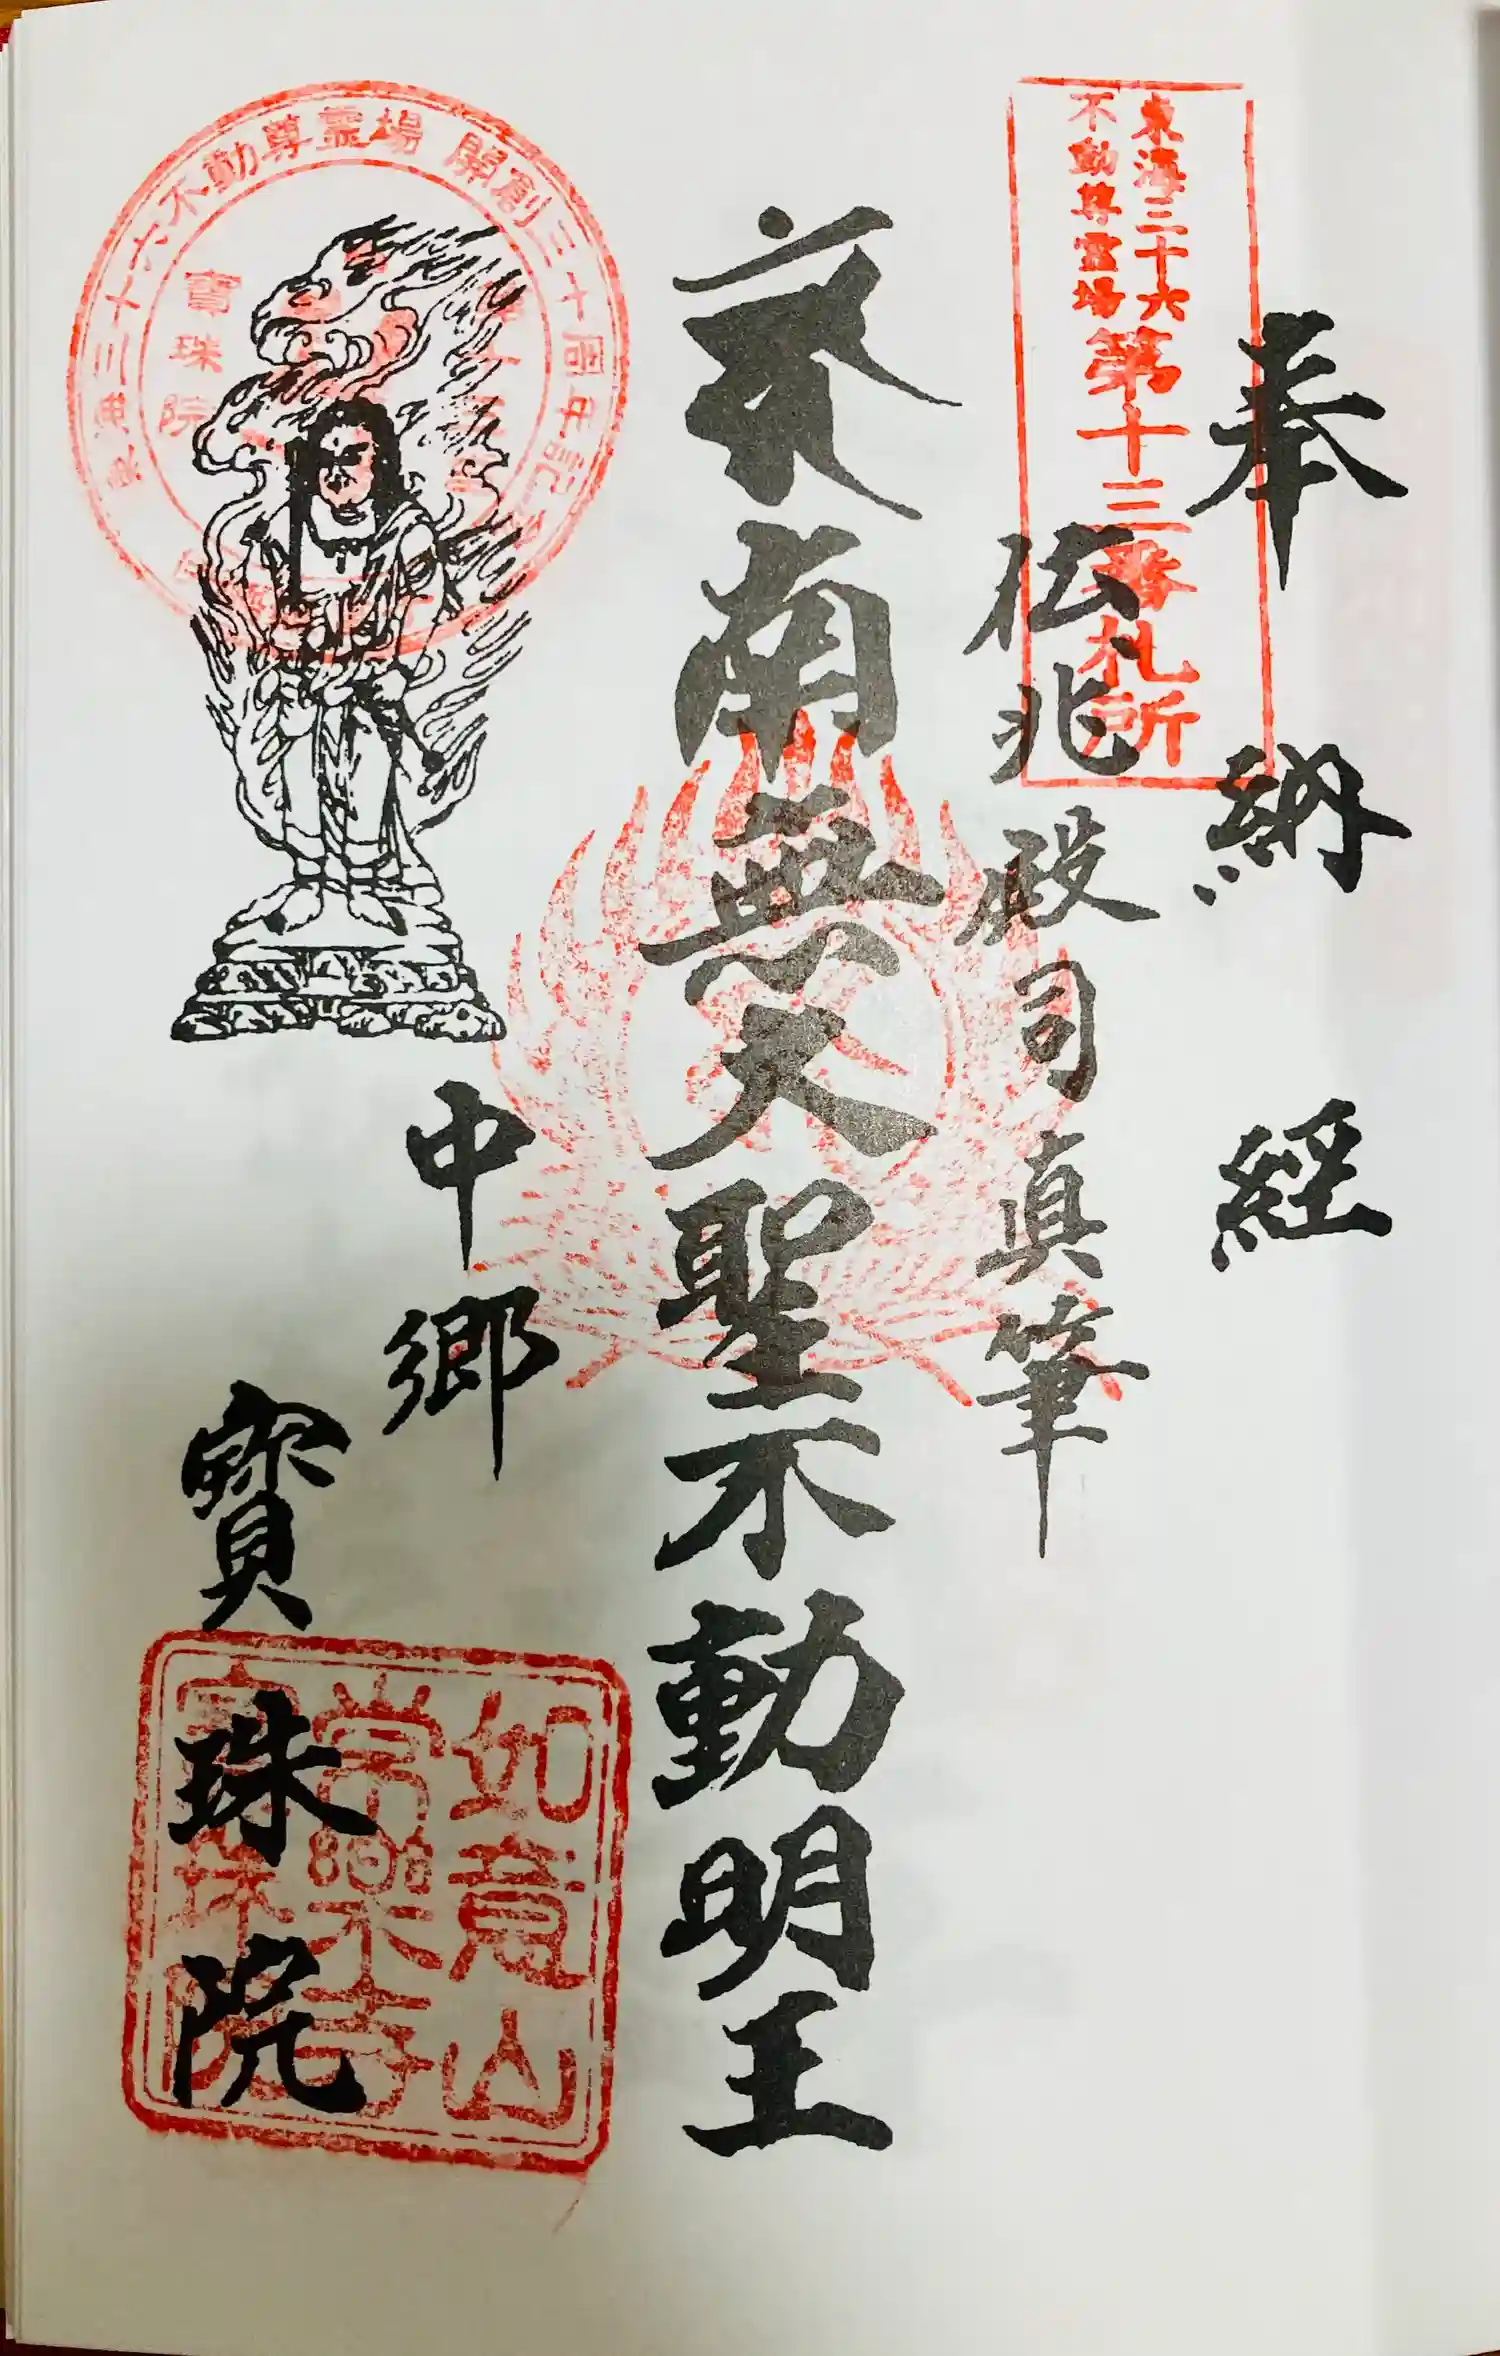 奉納経
東海三十六
不動尊霊場
第十三番札所
伝兆殿司真筆
南無大聖不動明王
三十六不動尊霊場 開創三十周年記念
寶珠院
中郷
寶珠院
如意山
常樂寺
寶珠院